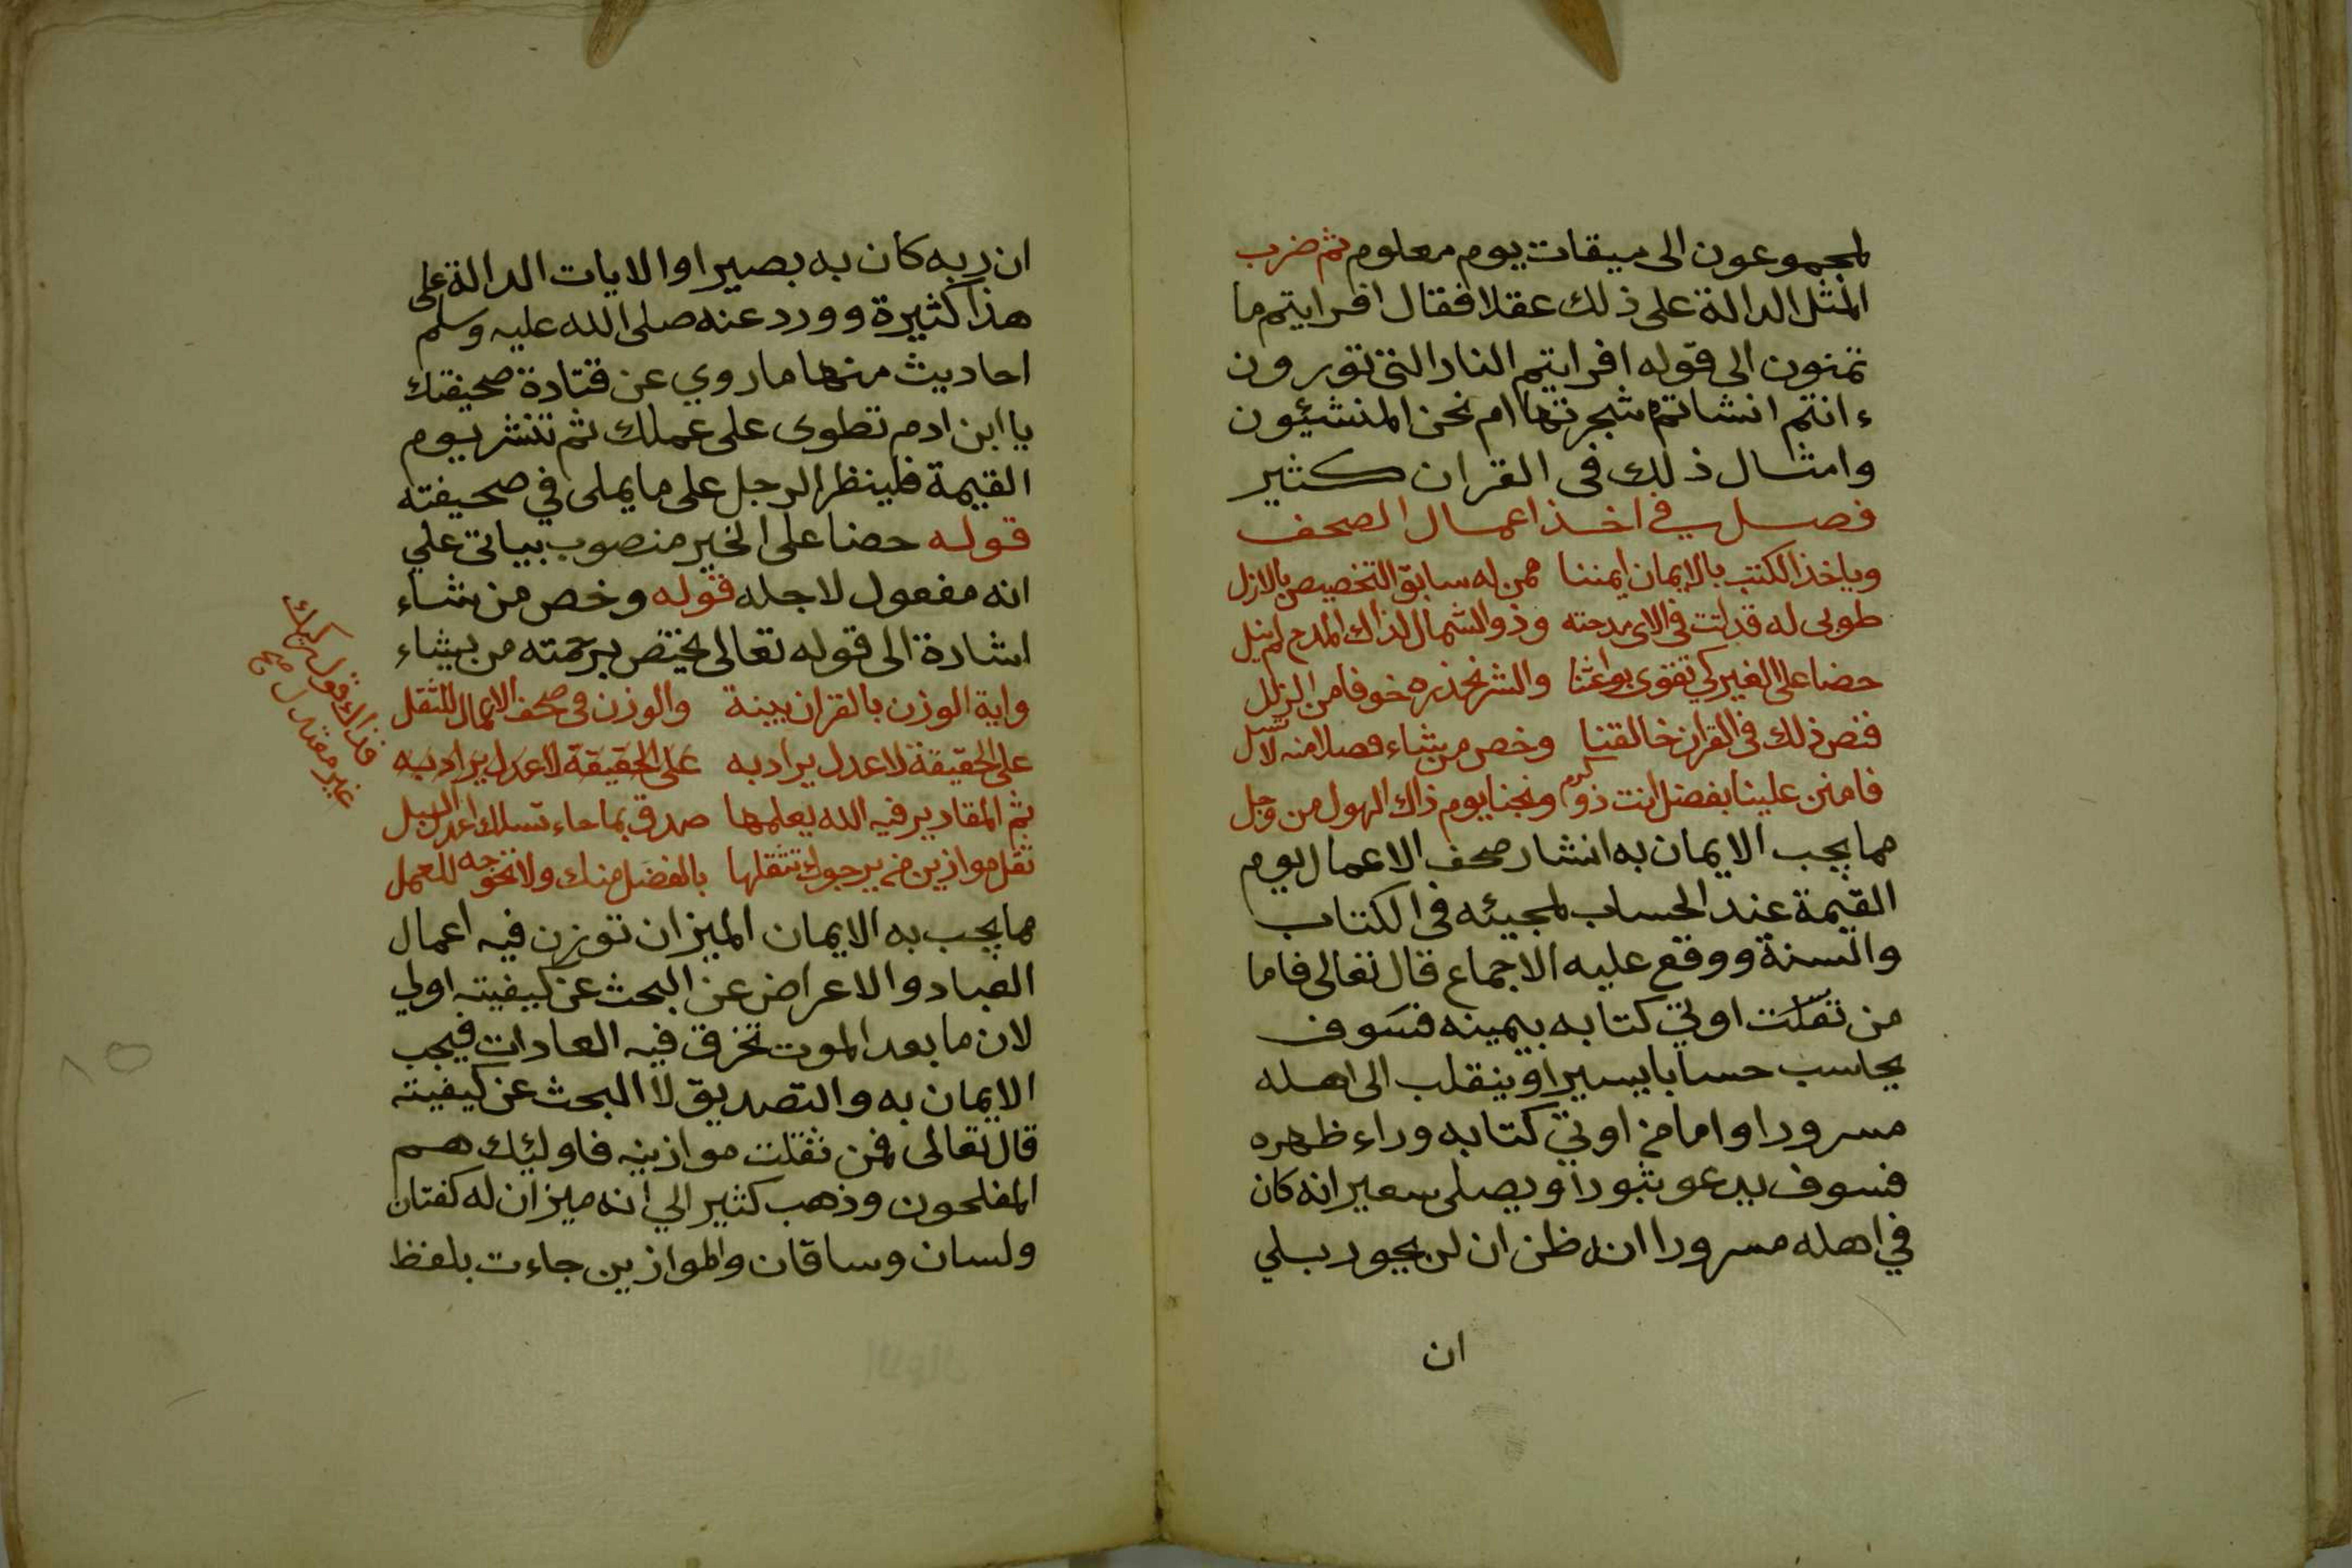 لمجموعون الى ميقات يوم معلوم ثم ضرب
المثل الدالة على ذلك عقلا فقال افرايتم ما
تمنون الى قوله افرايتم النار التي تورون
ءانتم انشاتم شجرتها ام نحن المنشئون
وامثال ذلك في القران كثير
فصل في اخذ اعمال الصحف
وياخذ الكتب بالايمان ايمننا ممن له سابق التخصيص بالازل
طوبى له قد اتت في الاي مدحته وذو الشمال لذاك المدح لم ينل
حضا على الخير كي تقوى بواعثنا والشر نحذره خوفا من الزلل
فنص ذلك في القران خالقنا وخص من شاء فصلا منه لا تسل
فامنن علينا بفضل انت ذو كرم ونجنا يوم ذاك الهول من وجل
مما يجب الايمان به انتشار صحف الاعمال يوم
القيمة عند الحساب لمجيئه في الكتاب
والسنة ووقع عليه الاجماع قال تعالى فاما
من ثقلت اوتي كتابه بيمينه فسوف
يحاسب حسابا يسيرا وينقلب الى اهله
مسرورا واما من اوتي كتابه وراء ظهره
فسوف يدعو ثبورا ويصلى سعيرا انه كان
في اهله مسرورا انه ظن ان لن يحور بلي
ان
ان ربه كان به بصيرا والايات الدالة على
هذا كثيرة وورد عنه صلى الله عليه وسلم
احاديث منها ما روي عن قتادة صحيفتك
يا ابن ادم تطوى على عملك ثم تنشر يوم
القيمة فلينظر الرجل على ما يملى في صحيفته
قوله حضا على الخير منصوب بيياتي علي
انه مفعول لاجله قوله وخص من شاء
اشارة الى قوله تعالى يختص برحمته من يشاء
واية الوزن بالقران بينة والوزن في صحف الاعمال للثقل
على الحقيقة لا عدل يراد به على الحقيقة لا عدل يراد به
ثم المقادير فيه الله يعلمها صدق بما جاء تسلك اعدل السبل
ثقل موازين من يرجوك تثقلها بالفضل منك ولا تحوجه للعمل
مما يجب به الايمان الميزان توزن فيه اعمال
العباد والاعراض عن البحث عن كيفيته اولي
لان ما بعد الموت تخرق فيه العادات فيجب
الايمان به والتصديق لا البحث عن كيفيته
قال تعالى فمن ثقلت موازينه فاولئك هم
المفلحون وذهب كثير الي انه ميزان له كفتان
ولسان وساقان والموازين جاءت بلفظ
فذاك قول
غير معتدل صح